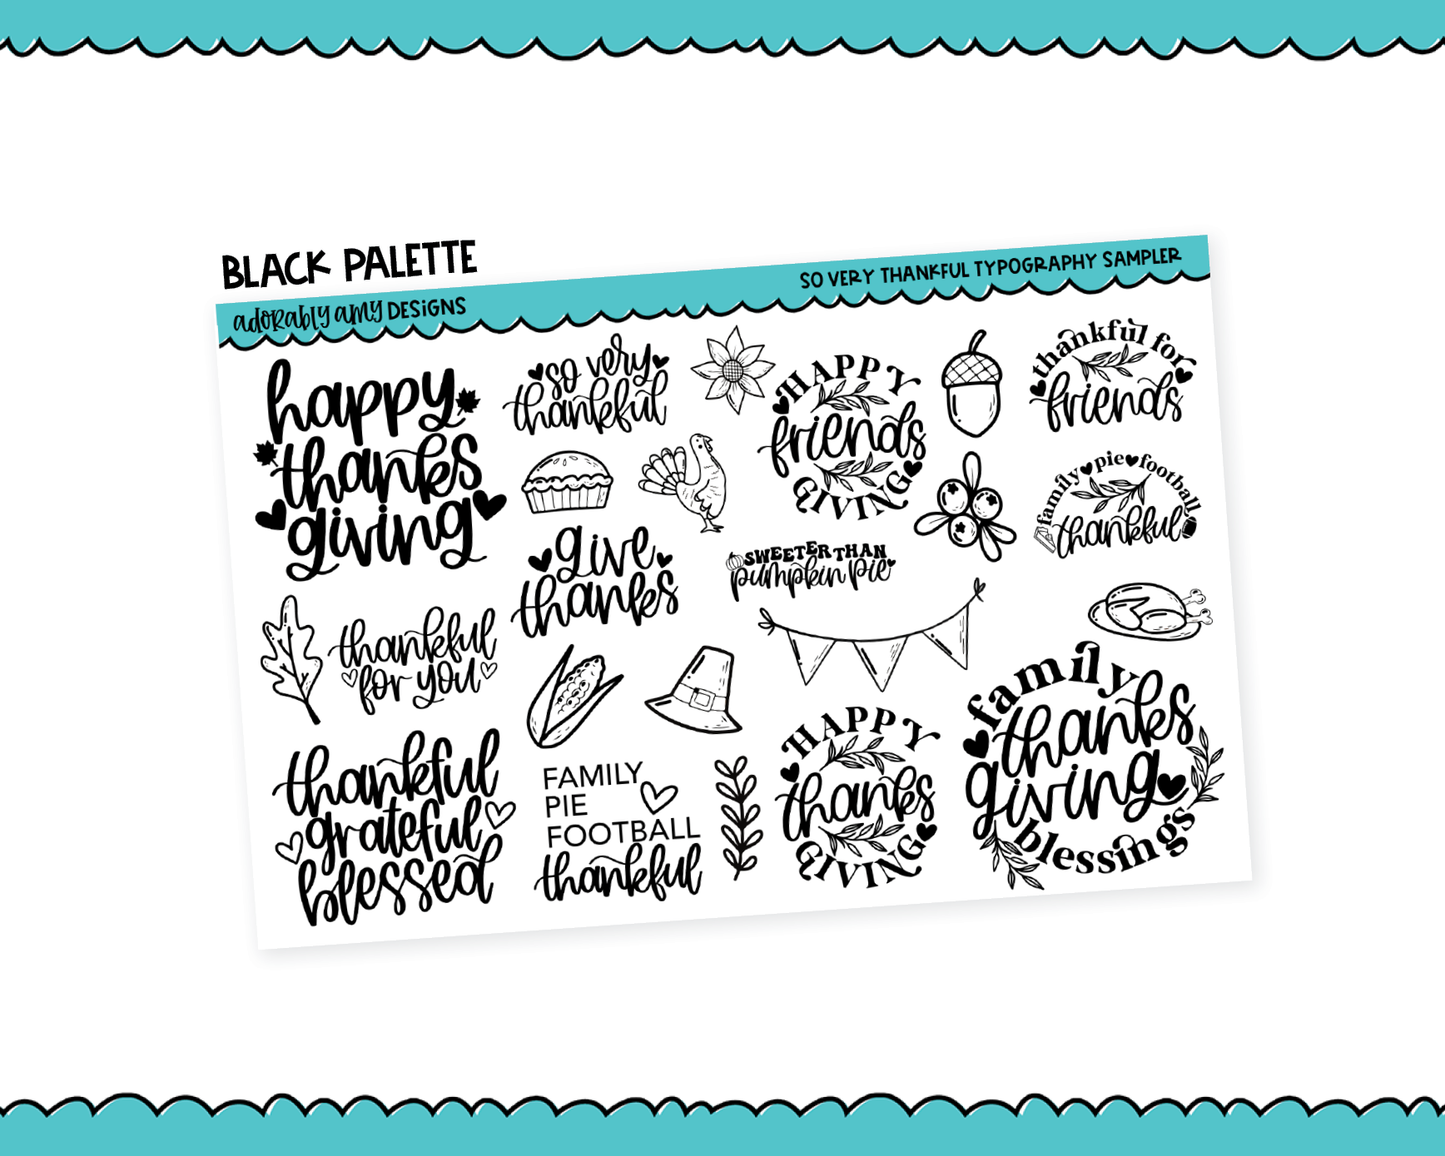 BLACK PALETTE
adorably amy DESIGNS
SO VERY THANKFUL TYPOGRAPHY SAMPLER
happy
thanks
giving
so very
thankful
HAPPY
friends
GIVING
thankful for
friends
family pie football
thankful
give
thanks
SWEETER THAN
pumpkin pie
thankful
for you
thankful
grateful
blessed
FAMILY
PIE
FOOTBALL
thankful
HAPPY
thanks
GIVING
family
thanks
giving
blessings